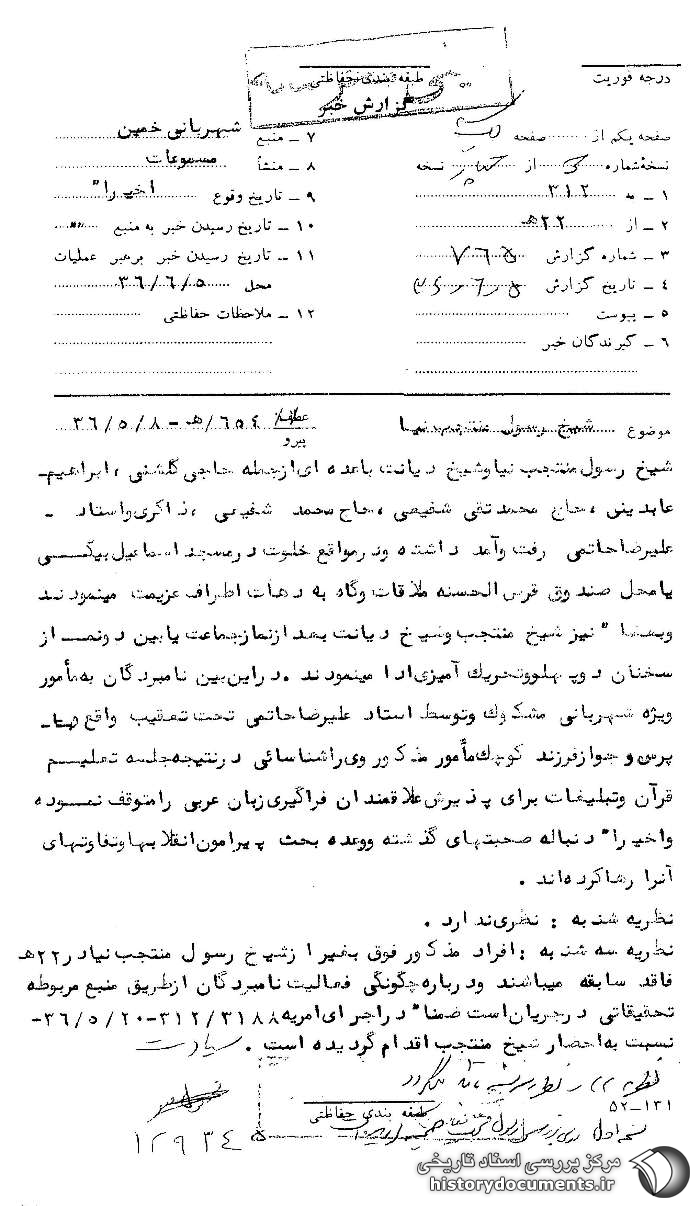 درجه فوریت
طبقه بندی حفاظتی
گزارش خبر
صفحه یکم از صفحه
نسخهٔ شماره از نسخه
۱ ــ به ۳۱۲
۲ ــ از ۲۲ هـ
۳ ــ شماره گزارش ۷۶۵
۴ ــ تاریخ گزارش
۵ ــ پیوست
۶ ــ گیرندگان خبر
۷ ــ منبع شهربانی خمین
۸ ــ منشأ مسموعات
۹ ــ تاریخ وقوع اخیرا"
۱۰ ــ تاریخ رسیدن خبر به منبع ""
۱۱ ــ تاریخ رسیدن خبر برهبر عملیات
محل ۳۶/۶/۵
۱۲ ــ ملاحظات حفاظتی
موضوع شیخ رسول منتجب نیا
عطف/ ۶۵۴/هـ - ۳۶/۵/۸
پیرو
شیخ رسول منتجب نیا وشیخ دیانت باعده ای ازجمله حاجی گلشنی ، ابراهیم ــ
عابدینی ، حاج محمدتقی شفیعی ، حاج محمد شفیعی ، ذاکری واستاد ــ
علیرضاحاتمی رفت وآمد داشته ودرمواقع خلوت درمسجد اسماعیل بیکسی
یامحل صندوق قرس الحسنه ملاقات وگاه به دهات اطراف عزیمت مینمودند
وبعضا" نیز شیخ منتجب وشیخ دیانت بعد ازنمازجماعت یابین دونمـاز
سخنان دوپهلووتحریك آمیزی ادا مینمودند . دراین بین نامبردگان به مأمور
ویژه شهربانی مشکوك وتوسط استاد علیرضاحاتمی تحت تعقیب واقع وبا ــ
پرس وجوازفرزند کوچك مأمور مذکور وی راشناسائی درنتیجه جلسه تعلیـم
قرآن وتبلیغات برای پذیرش علاقمندان فراگیری زبان عربی رامتوقف نمـوده
واخیرا" دنباله صحبتهای گذشته ووعده بحث پیرامون انقلابهاوتفاوتهای
آنرا رهاکرده اند .
نظریه شنبه : نظری ندارد .
نظریه سه شنبه : افراد مذکور فوق بغیر ازشیخ رسول منتجب نیادر۲۲هـ
فاقد سابقه میباشند ودرباره چگونگی فعالیت نامبردگان ازطریق منبع مربوطه
تحقیقاتی درجریان است ضمنا" دراجرای امریه ۳۱۲/۳۱۸۸-۳۶/۵/۲۰-
نسبت به احضار شیخ منتجب اقدام گردیده است .
۵۲-۱۳۱
طبقه بندی حفاظتی
۱۲۹۳۴۵
مرکز بررسی اسناد تاریخی
historydocuments.ir